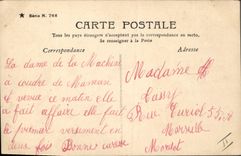 ★ Série N. 764
CARTE POSTALE
Tous les pays étrangers n'acceptent pas la correspondance au recto,
Se renseigner à la Poste
Correspondance
Adresse
La dame de la Machine
à coudre de Maman
est venue ce matin elle
a fait affaire elle fait
le premier versement en
deux fois Bonne caresse
Madame
Cassy
Rue Turiol
Marseille